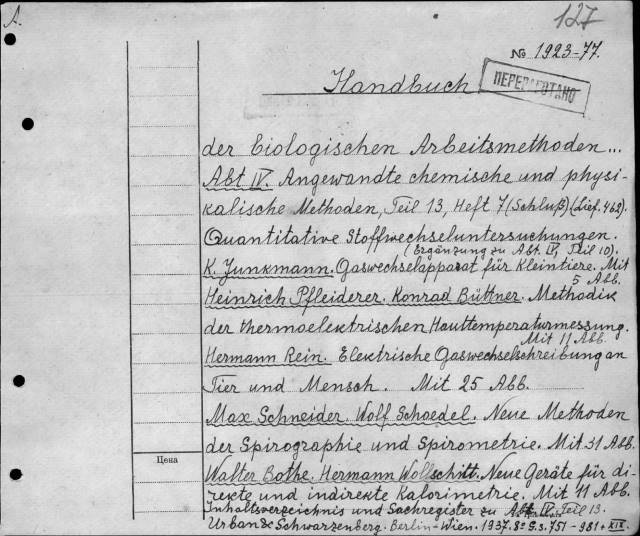 A.
127
№ 1923-77.
Handbuch
ПЕРЕРАБОТАНО
der biologischen Arbeitsmethoden...
Abt IV. Angewandte chemische und physi-
kalische Methoden, Teil 13, Heft 7 (Schluß) (Lief. 462).
Quantitative Stoffwechseluntersuchungen.
(Ergänzung zu Abt. IV, Teil 10).
K. Junkmann. Gaswechselapparat für Kleintiere. Mit
5 Abb.
Heinrich Pfleiderer. Konrad Büttner. Methodik
der thermoelektrischen Hauttemperaturmessung.
Mit 11 Abb.
Hermann Rein. Elektrische Gaswechselschreibung an
Tier und Mensch. Mit 25 Abb.
Max Schneider. Wolf Schoedel. Neue Methoden
der Spirographie und Spirometrie. Mit 31 Abb.
Цена
Walter Bothe. Hermann Wollschitt. Neue Geräte für di-
rekte und indirekte Kalorimetrie. Mit 11 Abb.
Inhaltsverzeichnis und Sachregister zu Abt. IV, Teil 13.
Urban & Schwarzenberg. Berlin-Wien. 1937. 8° S. 751-981 + XIX.